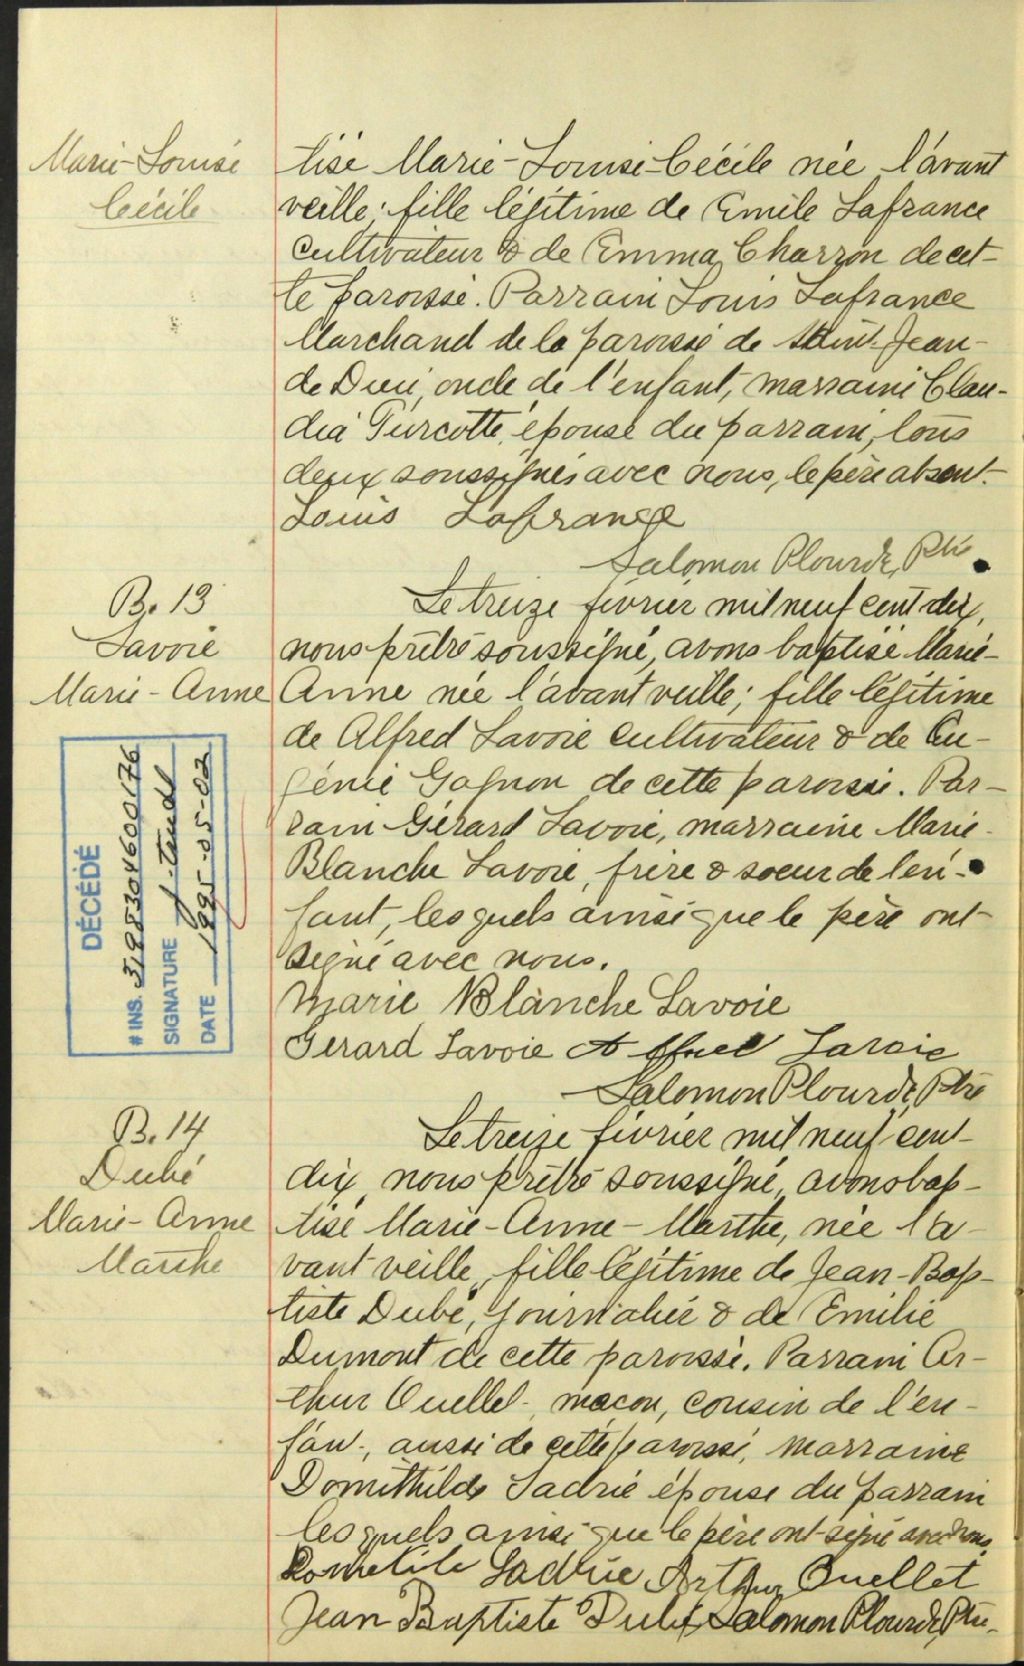 Marie-Louise
Cécile
tisé Marie-Louise-Cécile née l'avant
veille; fille légitime de Emile Lafrance
cultivateur & de Emma Charron de cet-
te paroisse. Parrain Louis Lafrance
Marchand de la paroisse de Saint-Jean-
de Dieu, oncle de l'enfant, marraine Clau-
dia Turcotte, épouse du parrain, tous
deux soussignés avec nous, le père absent.
Louis Lafrance
Salomon Plourde, Ptre
B. 13
Savoie
Marie-Anne
Le treize février mil neuf cent dix,
nous prêtre soussigné, avons baptisé Marie-
Anne née l'avant veille; fille légitime
de Alfred Savoie cultivateur & de Eu-
génie Gagnon de cette paroisse. Par-
rain Gérard Savoie, marraine Marie-
Blanche Savoie, frère & soeur de l'en-
fant, lesquels ainsi que le père ont
signé avec nous.
Marie Blanche Savoie
Gerard Savoie Savoie
Salomon Plourde, Ptre
DÉCÉDÉ
# INS. 3198304600176
SIGNATURE
DATE 1995-05-02
B. 14
Dubé
Marie-Anne
Marthe
Le treize février mil neuf cent
dix, nous prêtre soussigné, avons bap-
tisé Marie-Anne-Marthe, née l'a-
vant veille, fille légitime de Jean-Bap-
tiste Dubé, journalier & de Emilie
Dumont de cette paroisse. Parrain Ar-
thur Ouellet, maçon, cousin de l'en-
fant, aussi de cette paroisse, marraine
Domithilde Sadrie épouse du parrain
lesquels ainsi que le père ont signé avec nous.
Sadrie Arthur Ouellet
Jean Baptiste Dubé Salomon Plourde, Ptre